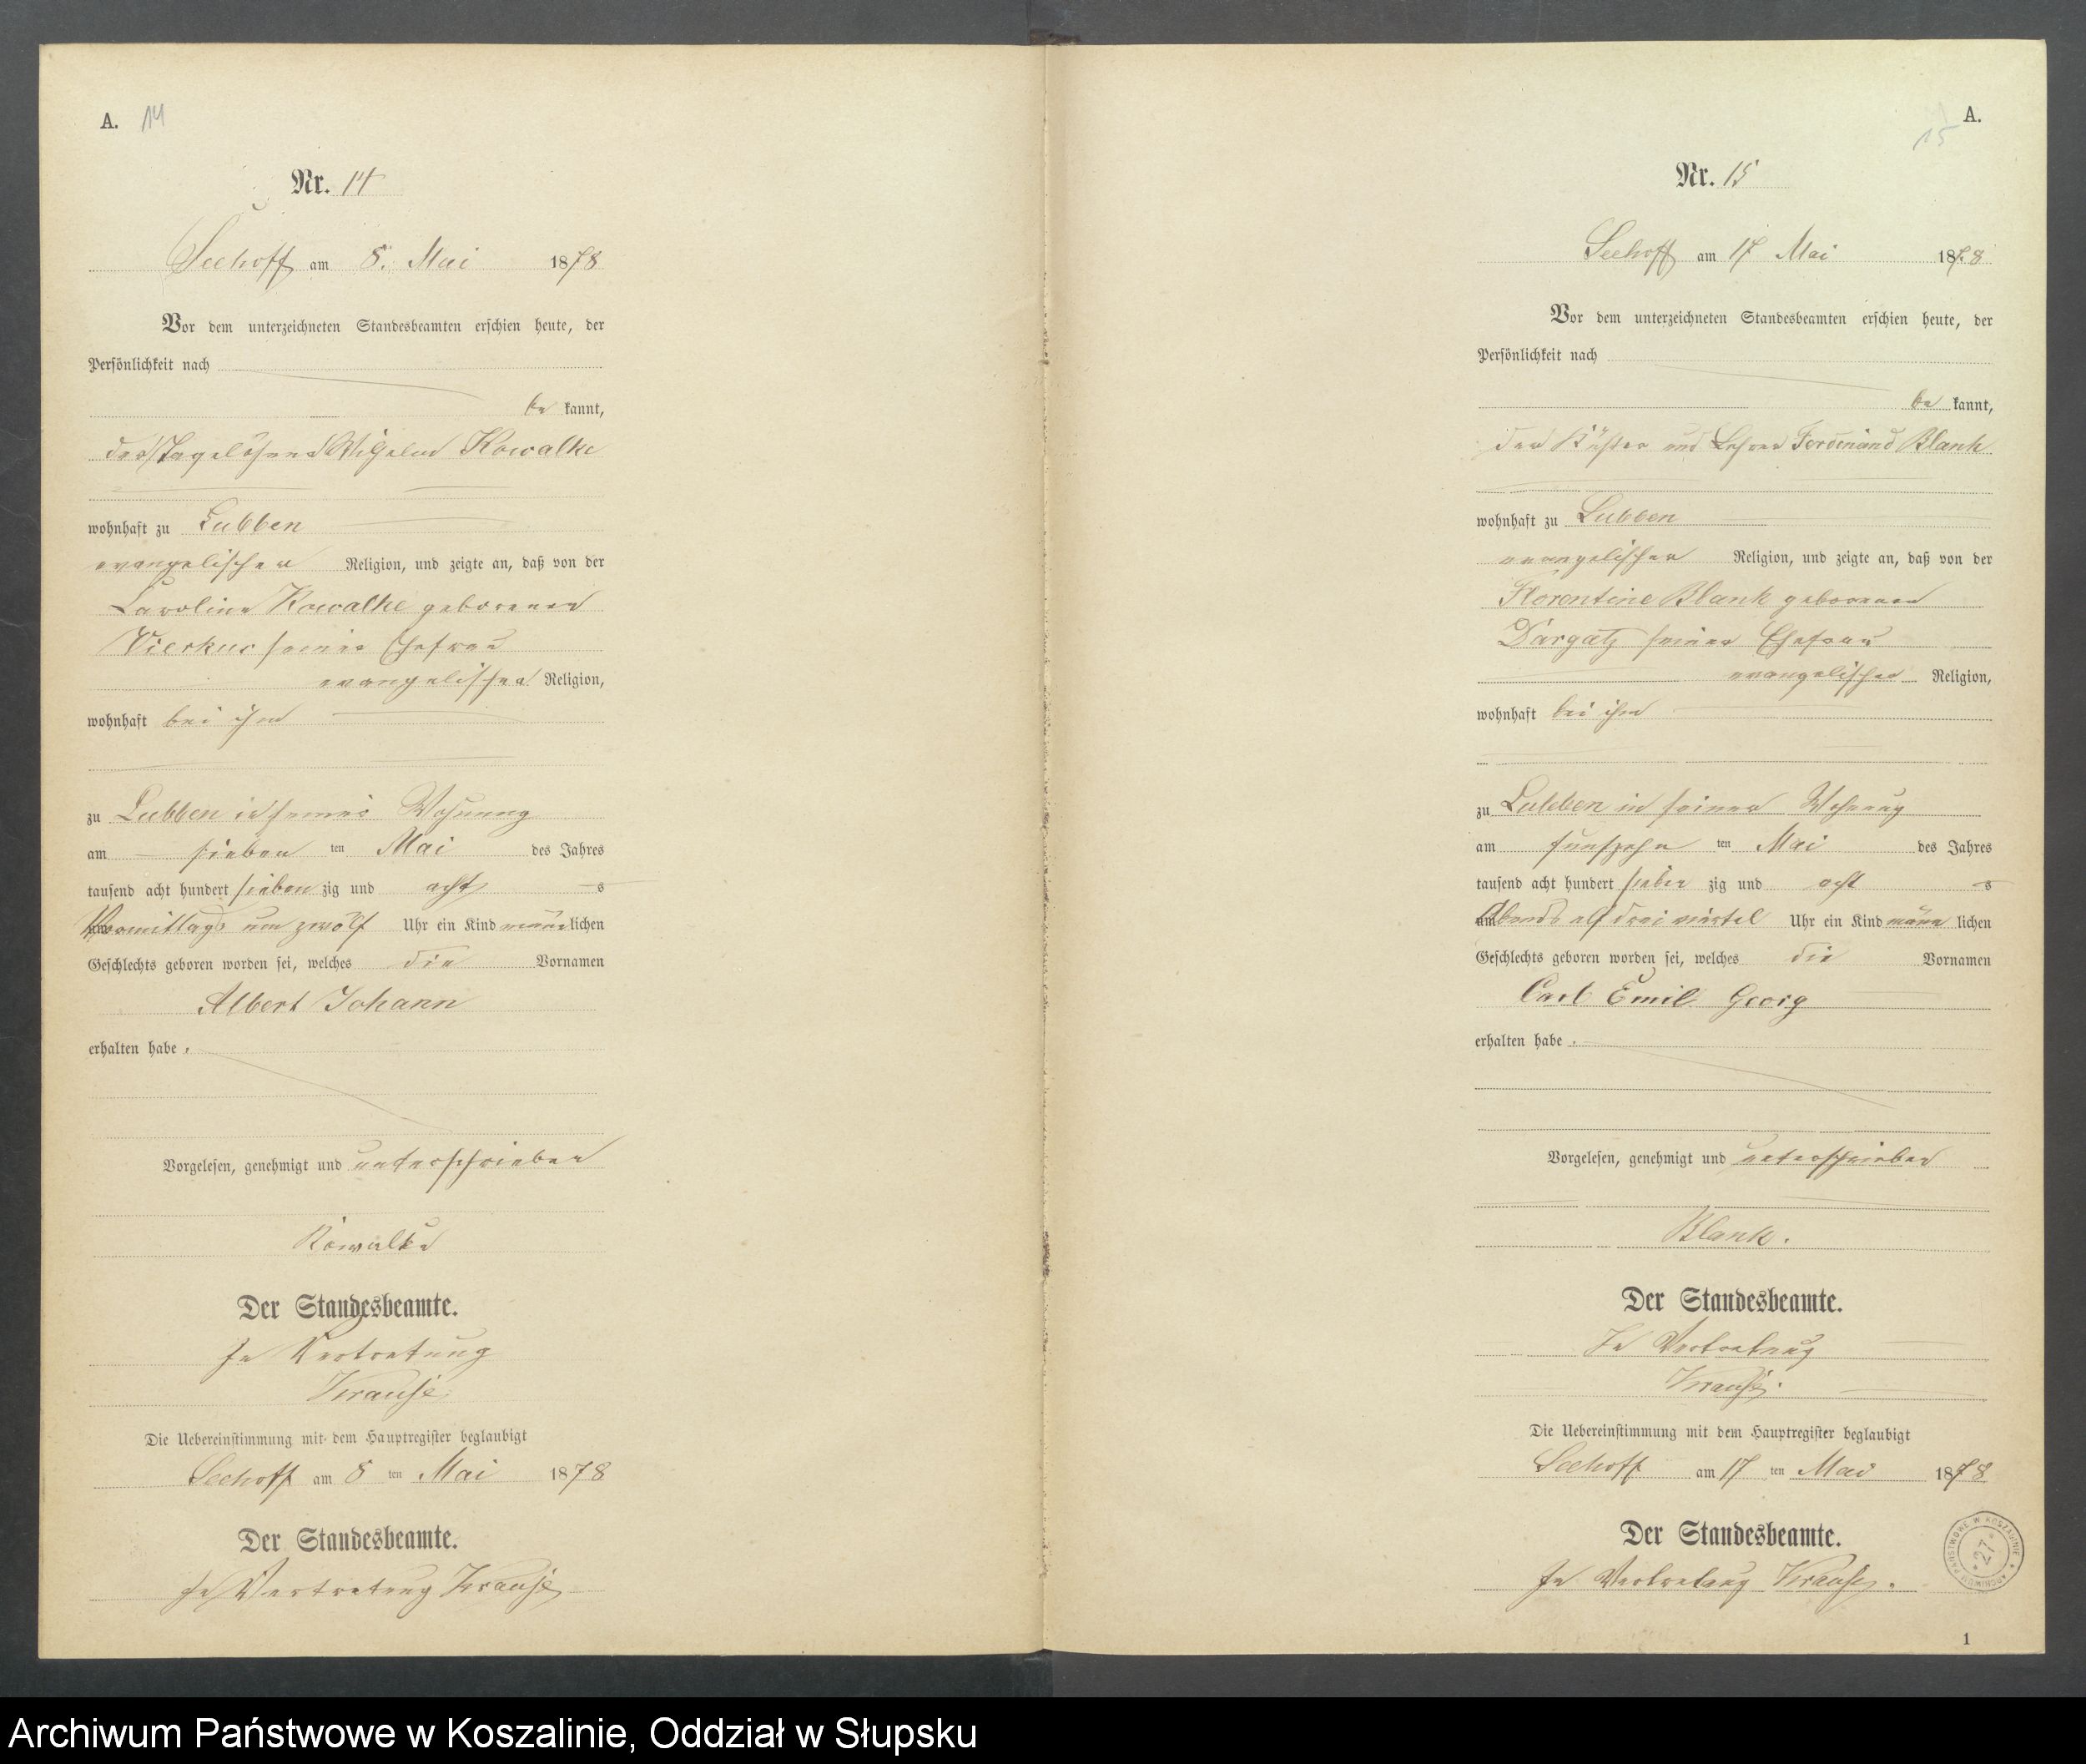 A. 14
Nr. 14
Seehoff am 8. Mai 1878
Vor dem unterzeichneten Standesbeamten erschien heute, der
Persönlichkeit nach
be kannt,
der Tagelöhner Wilhelm Kowalke
wohnhaft zu Lubben
evangelischer Religion, und zeigte an, daß von der
Caroline Kowalke geborenen
Vierkus seiner Ehefrau
evangelischer Religion,
wohnhaft bei ihm
zu Lubben in seiner Wohnung
am sieben ten Mai des Jahres
tausend acht hundert sieben zig und acht s
Vormittags um zwölf Uhr ein Kind männlichen
Geschlechts geboren worden sei, welches die Vornamen
Albert Johann
erhalten habe.
Vorgelesen, genehmigt und unterschrieben
Kowalke
Der Standesbeamte.
In Vertretung
Krause
Die Uebereinstimmung mit dem Hauptregister beglaubigt
Seehoff am 8 ten Mai 1878
Der Standesbeamte.
In Vertretung Krause
A.
15
Nr. 15
Seehoff am 17 Mai 1878
Vor dem unterzeichneten Standesbeamten erschien heute, der
Persönlichkeit nach
be kannt,
der Küster und Lehrer Ferdenand Blank
wohnhaft zu Lubben
evangelischer Religion, und zeigte an, daß von der
Florentine Blank geborenen
Dargatz seiner Ehefrau
evangelischer Religion,
wohnhaft bei ihm
zu Lubben in seiner Wohnung
am funfzehn ten Mai des Jahres
tausend acht hundert sieben zig und acht s
um Abends elf drei viertel Uhr ein Kind männ lichen
Geschlechts geboren worden sei, welches die Vornamen
Carl Emil Georg
erhalten habe.
Vorgelesen, genehmigt und unterschrieben
Blank.
Der Standesbeamte.
In Vertretung
Krause.
Die Uebereinstimmung mit dem Hauptregister beglaubigt
Seehoff am 17 ten Mai 1878
Der Standesbeamte.
In Vertretung Krause.
ARCHIWUM PAŃSTWOWE W KOSZALINIE
27
1
Archiwum Państwowe w Koszalinie, Oddział w Słupsku